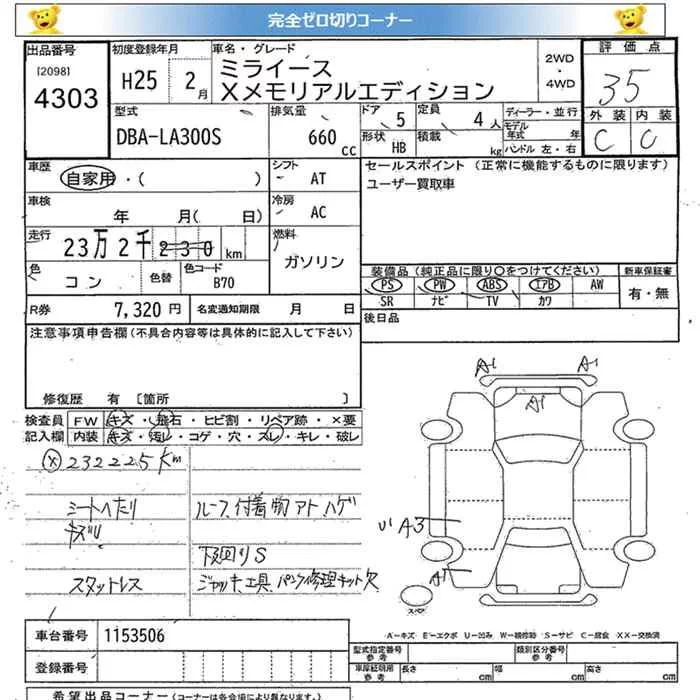 完全ゼロ切りコーナー
出品番号 初度登録年月 車名・グレード 評価点
[2098] 4303 H25 2月 ミライース 2WD ・ 4WD 35
Xメモリアルエディション
型式 排気量 ドア 定員 ディーラー・並行 外装 内装
DBA-LA300S 660 cc 5 4 人 モデル年式 年 C C
形状 HB 積載 kg ハンドル 左・右
車歴 シフト セールスポイント (正常に機能するものに限ります)
自家用・( ) AT ユーザー買取車
車検 冷房
年 月( 日) AC
走行 燃料
23万2千230 km ガソリン
色 色替 カラーコード 装備品(純正品に限り○をつけてください) 新車保証書
コン B70 PS PW ABS エアB AW 有・無
SR ナビ TV カワ
R券 7,320 円 名変通知期限 月 日 後日品
注意事項申告欄(不具合内容等は具体的に記入して下さい)
修復歴 有 [箇所 ]
検査員 FW キズ・飛石・ヒビ割・リペア跡・×要
記入欄 内装 キズ・汚レ・コゲ・穴・スレ・キレ・破レ
A1 A1
A1
ⓧ232225Km
シートヘたり ルーフ付着物アト ハゲ
キズリ
A3
下廻りS
A1
スタットレス ジャッキ工具 パンク修理キット欠
スペア
A-キズ E-エクボ U-凹み W-補修跡 S-サビ C-腐食 XX-交換済
車台番号 1153506
型式指定番号 参考 類別区分番号 参考
登録番号 車庫証明用 参考 長さ cm 幅 cm 高さ cm
希望出品コーナー(コーナーは各会場により異なります)